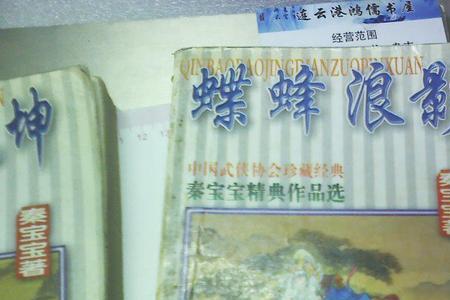 连云港鸿儒书屋
经营范围
QINBAOBAOJINGDIANZUOPINXUAN
蝶蜂浪影
中国武侠协会珍藏经典
秦宝宝精典作品选
秦宝宝
坤
秦宝宝著
12